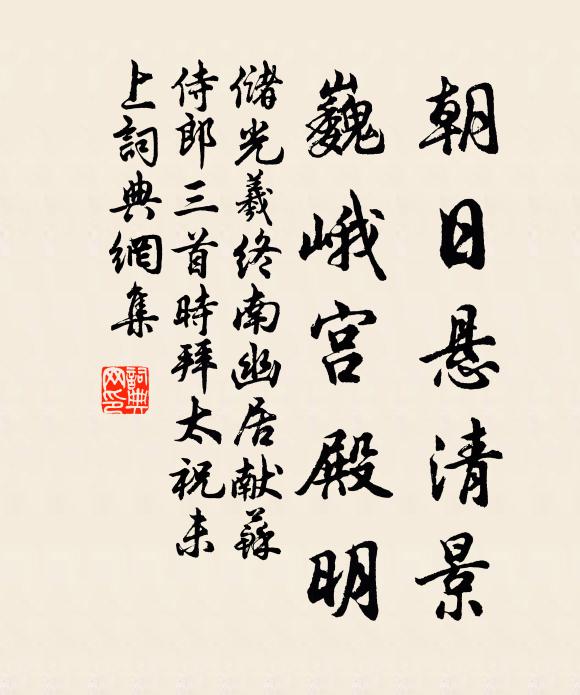 朝日悬清景
巍峨宫殿明
储光羲终南幽居献蘇
侍郎三首時拜太祝未
上詞典網集
詞典
网印